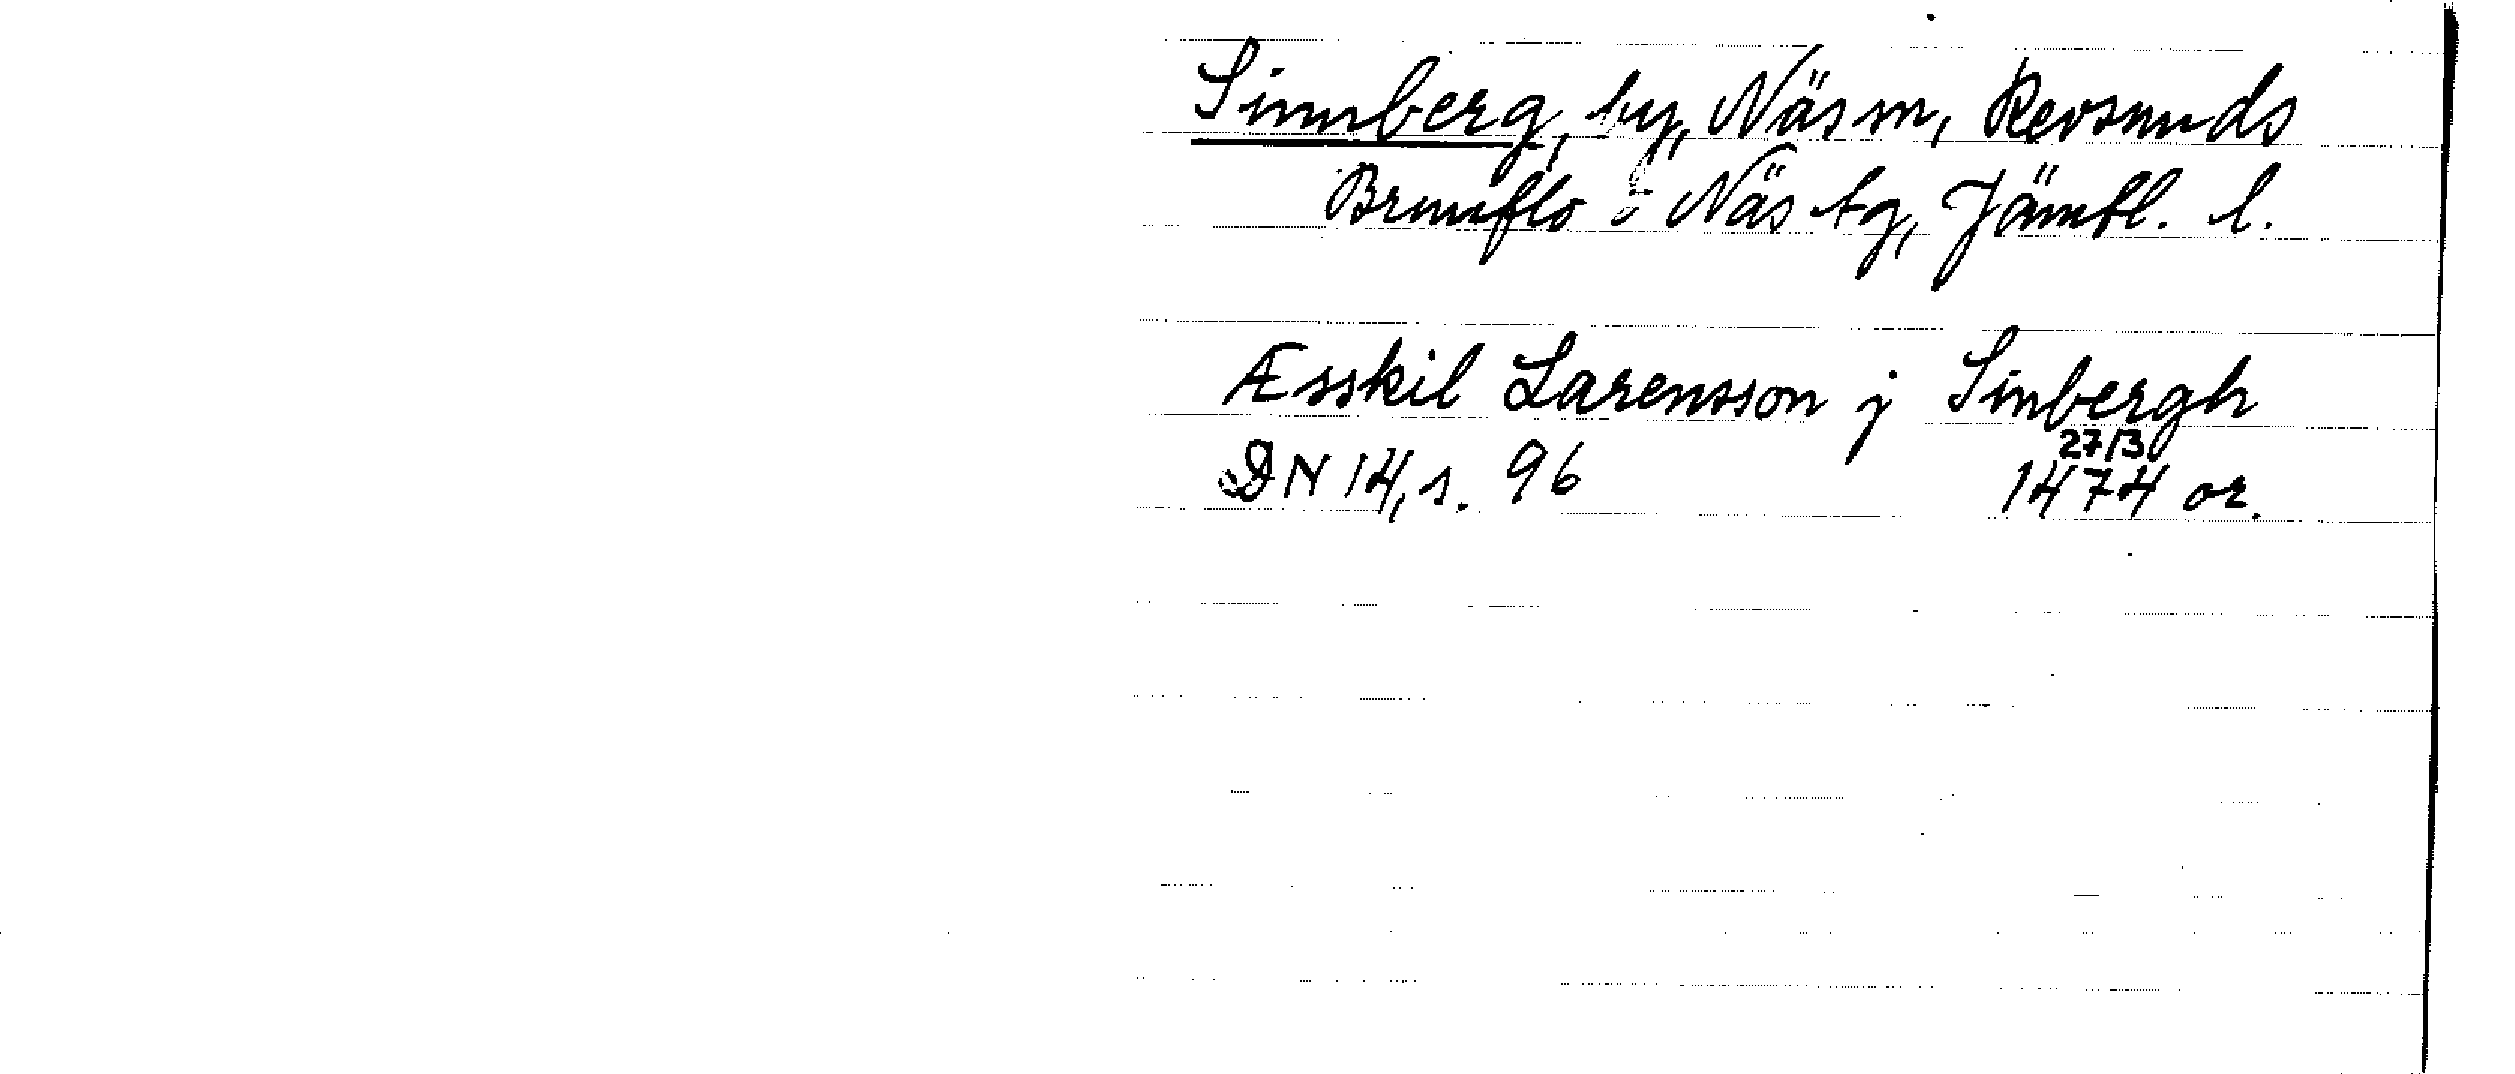 Sinnberg, by, Näs sn, Revsunds
Brunflo o Näs tg, Jämtl. l.
Æsskil Larensson j Sinbergh
27/3
DN 14, s. 96 1474 or.